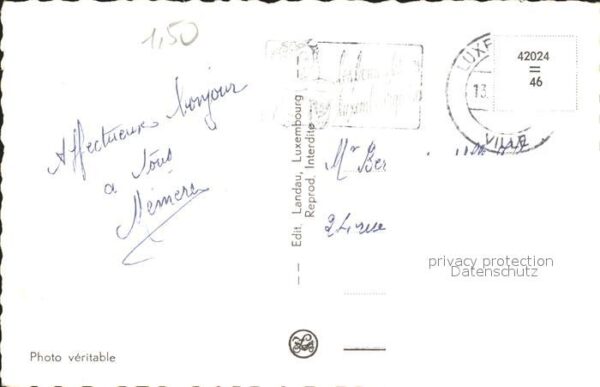 1,50
Affectueux bonjour
a tous
Mémère
Edit. Landau, Luxembourg
Reprod. Interdite
LUXE
13.
VILLE
42024
=
46
Mr Ber
24 rue
privacy protection
Datenschutz
Photo véritable